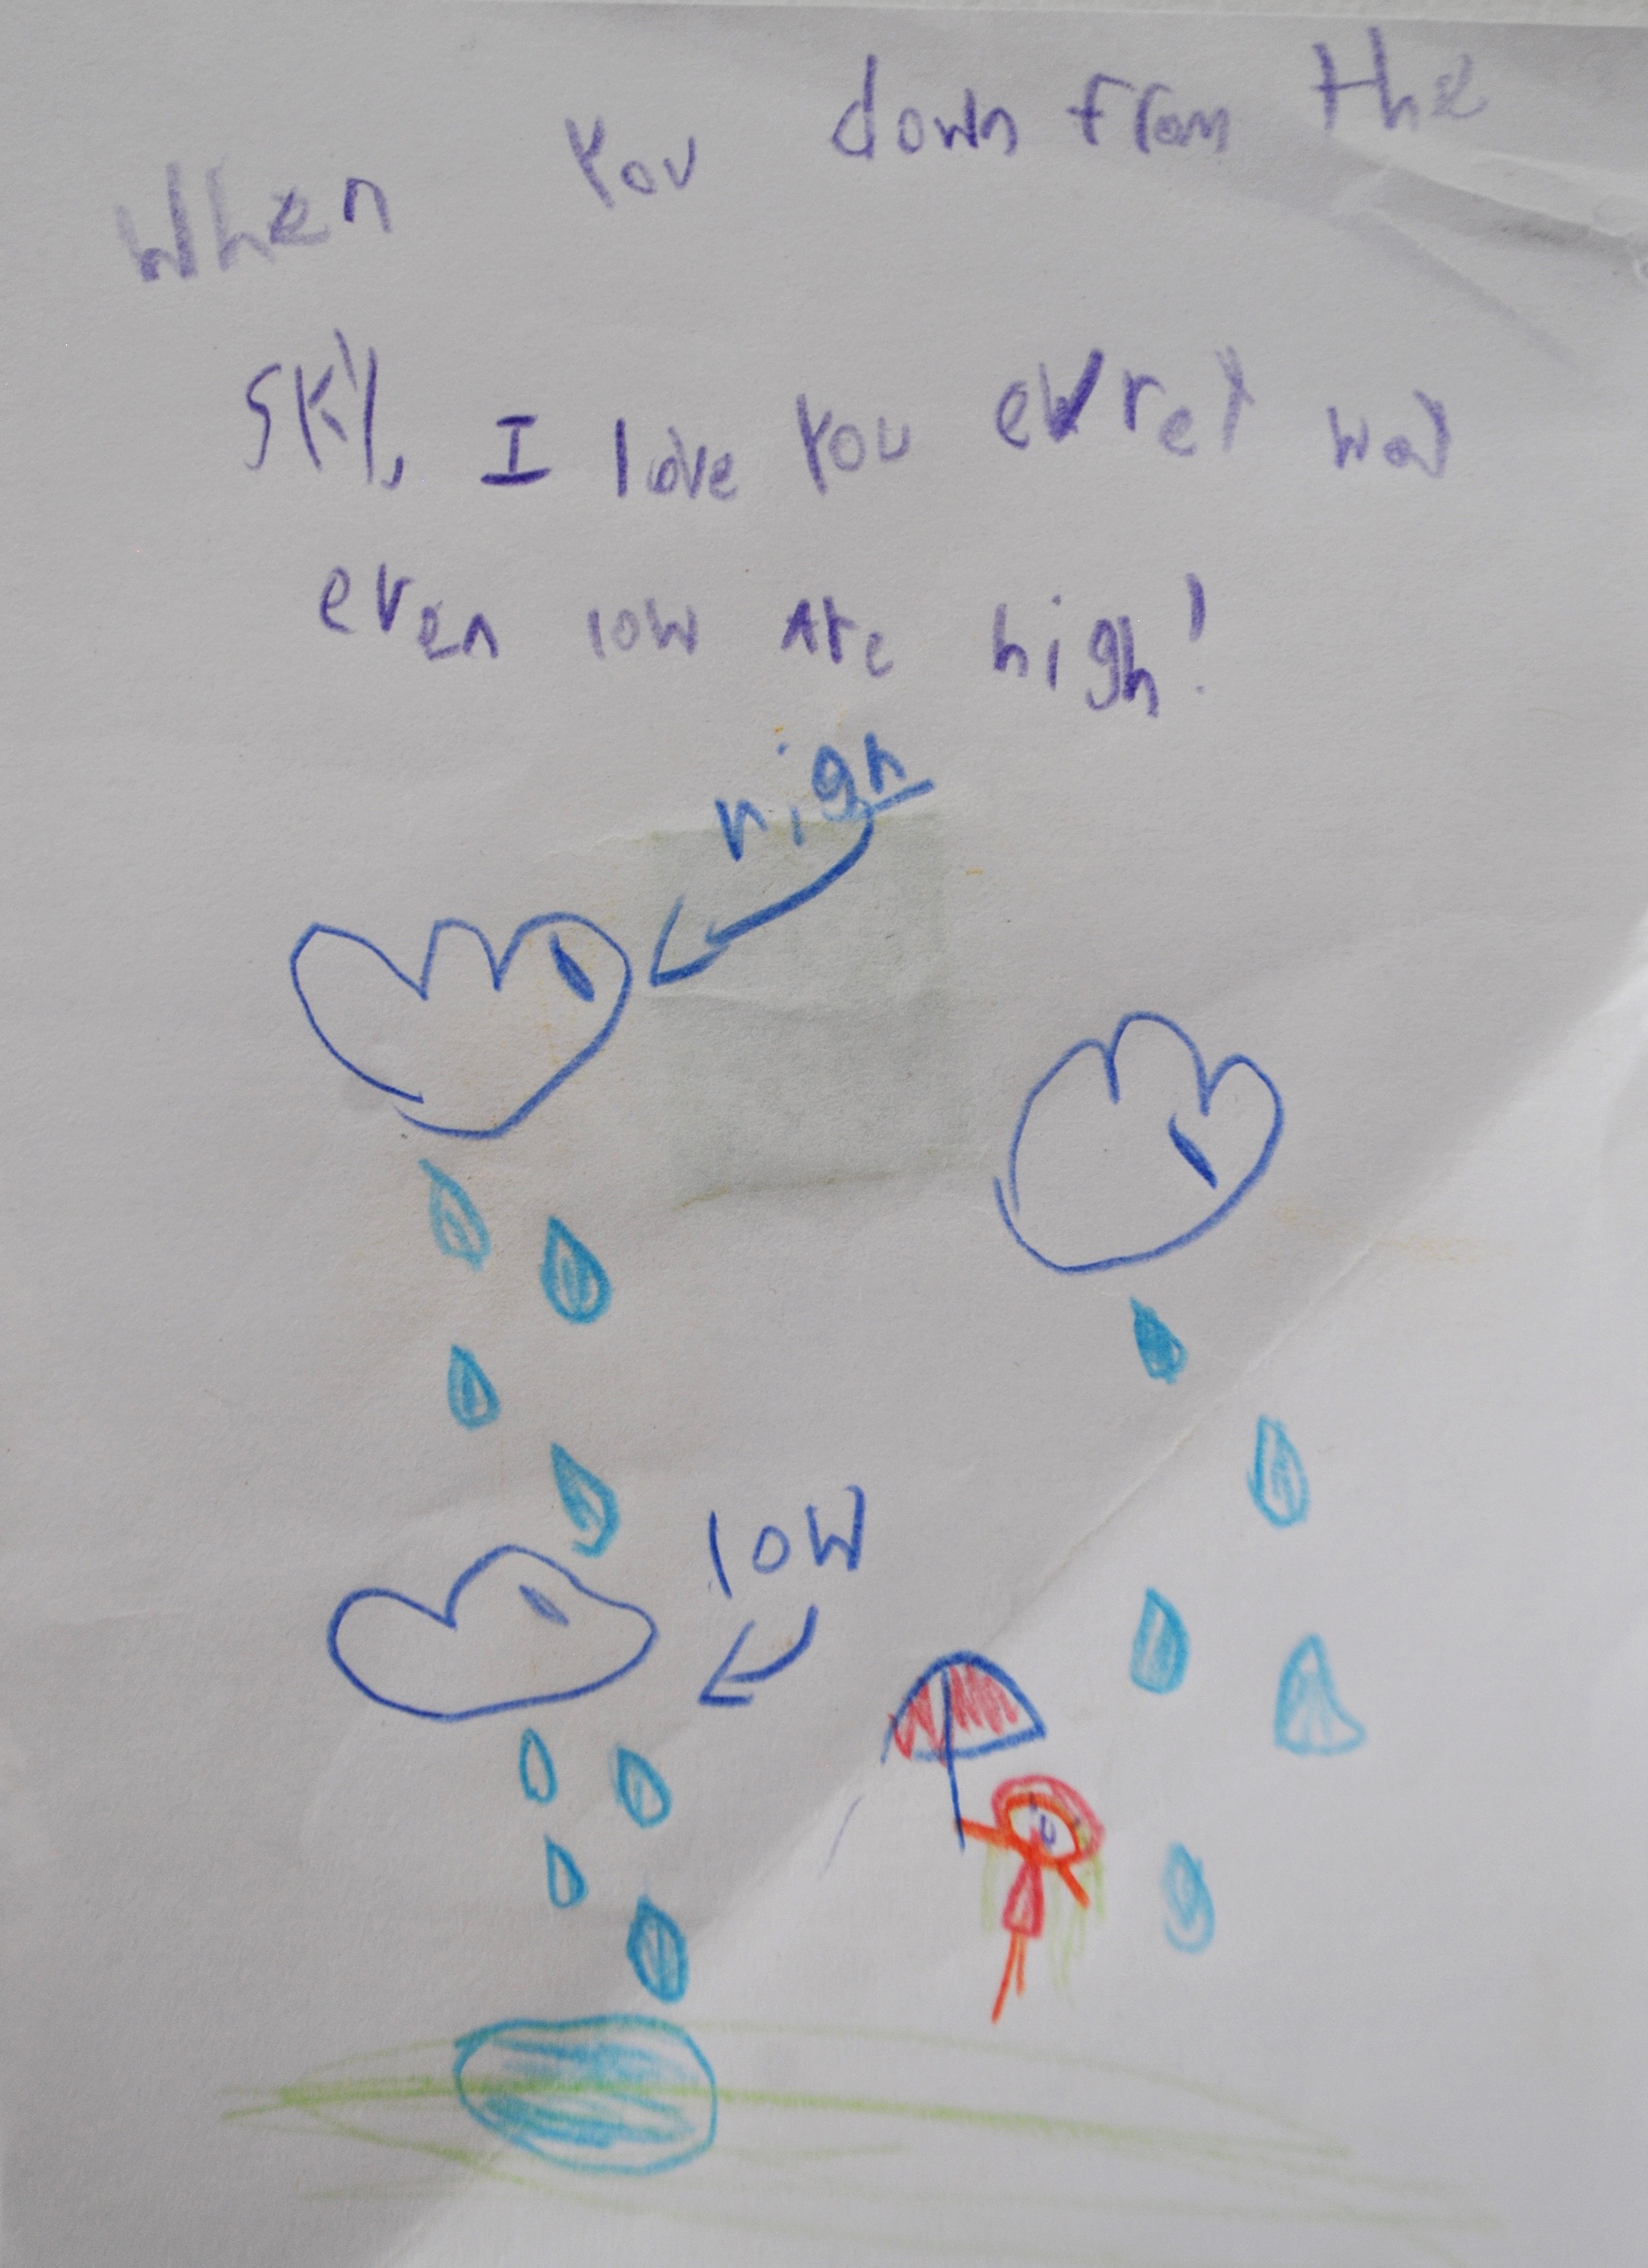 When you down from the
sky, I love you evrey way
even low are high!
high
low